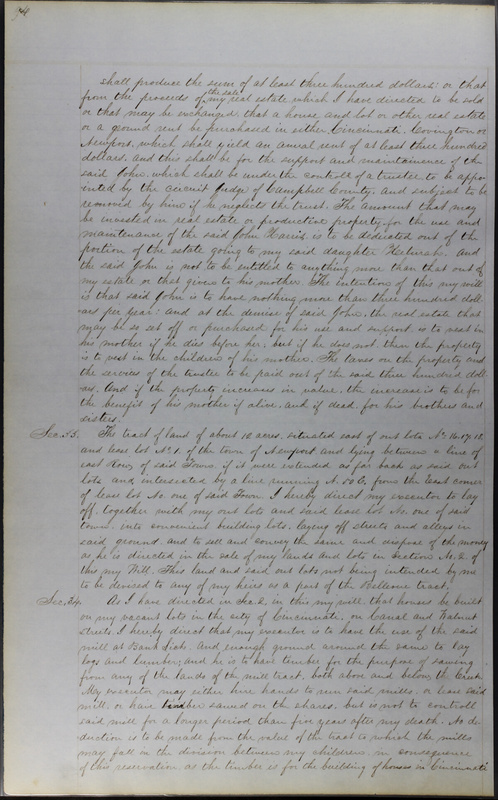 94
shall produce the sum of at least three hundred dollars: or that
from the proceeds of ^the sale my real estate which I have directed to be sold
or that may be exchanged, that a house and lot or other real estate
or a ground rent be purchased in either Cincinnati, Covington or
Newport, which shall yield an anual rent of at least three hundred
dollars, and this shall be for the support and maintainence of the
said John, which shall be under the controll of a trustee to be appo-
inted by the circuit Judge of Campbell County, and subject to be
removed by him if he neglects the trust. The amount that may
be invested in real estate or productive property, for the use and
maintenance of the said John Harris is to be dedicated out of the
portion of the estate going to my said daughter. And
the said John is not to be entitled to anything more than that out of
my estate or that given to his mother. The intention of this my will
is that said John is to have nothing more than three hundred doll-
ars per year: and at the demise of said John, the real estate that
may be so set off or purchased for his use and support, is to vest in
his mother if he dies before her; but if he does not then the property
is to vest in the children of his mother. The taxes on the property and
the services of the trustee to be paid out of the said three hundred doll-
ars. And if the property increases in value, the increase is to be for
the benefit of his mother if alive, and if dead, for his brothers and
sisters.
Sec. 33. The tract of land of about 12 acres, situated east of out lots No 16.17.18.
and lease lot No 1. of the town of Newport and lying between a line of
east Row, of said Town, if it were extended as far back as said out
lots and intersected by a line running from the East corner
of lease lot No one of said Town. I hereby direct my executor to lay
off, together with my out lots and said lease lot No one of said
town, into convenient building lots, laying off streets and alleys in
said ground, and to sell and convey the same and dispose of the money
as he is directed in the sale of my lands and lots in Section No 2 of
this my Will. This land and said out lots, not being intended by me
to be devised to any of my heirs as a part of the Bellevue tract.
Sec. 34. As I have directed in Sec. 2, in this my will, that houses be built
on my vacant lots in the city of Cincinnati, on Canal and Walnut
Streets, I hereby direct that my executor is to have the use of the said
mill at Bank Lick, and enough ground around the same to lay
logs and lumber; and he is to have timber for the purpose of sawing
from any of the lands of the mill tract, both above and below the Creek.
My executor may either hire hands to run said mills, or lease said
mill, or have timber sawed on the shares, but is not to controll
said mill for a longer period than five years after my death. No de-
duction is to be made from the value of the tract to which the mills
may fall in the division between my children, in consequence
of this reservation, as the timber is for the building of houses in Cincinnati